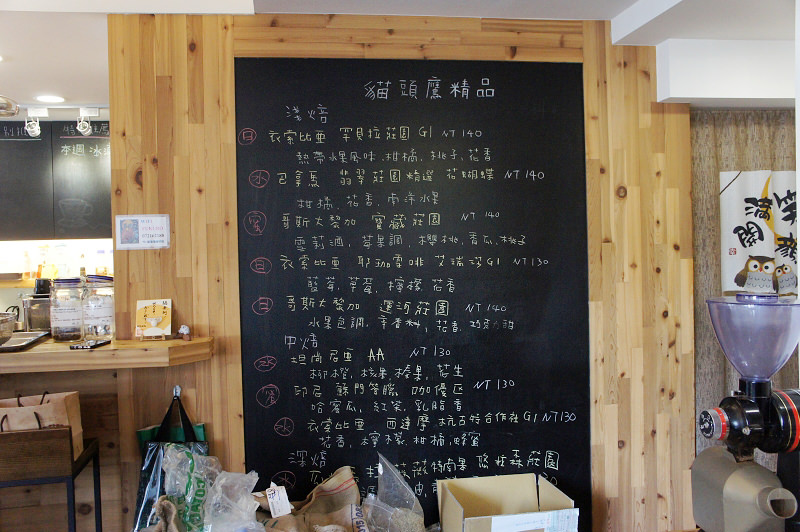 貓頭鷹精品
淺焙
日 衣索比亞 罕貝拉莊園 G1 NT 140
熱帶水果風味、柑橘、桃子、花香
水 巴拿馬 翡翠莊園精選 花蝴蝶 NT 140
柑橘、花香、南洋水果
蜜 哥斯大黎加 寶藏莊園 NT 140
雪莉酒、莓果調、櫻桃、香瓜、桃子
日 衣索比亞 耶珈雪啡 艾瑞莎G1 NT 130
藍莓、草莓、檸檬、花香
日 哥斯大黎加 運河莊園 NT 140
水果色調、辛香料、花香、巧克力甜
中焙
水 坦尚尼亞 AA NT 130
柳橙、核果、榛果、花生
印尼 蘇門答臘 咖優區 NT 130
哈蜜瓜、紅茶、乳脂香
水 衣索比亞 西達摩 G1 NT130
花香、檸檬、柑橘、蜂蜜
深焙
水 特南果 莊園
本週
滿